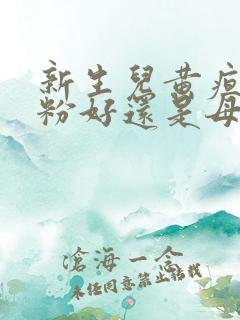 新生兒黃疸
粉好還是母
滄海一念
未經同意禁止轉載